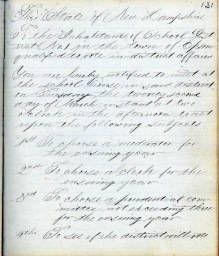 131
The State of New Hampshire
To the Inhabitants of School Dist
rict No 1 in the town of Epsom
qualified to vote in district affairs
You are hereby notified to meet at
the school house in said district
on Tuesday the twenty second
day of March instant at two
o'clock in the afternoon to act
upon the following subjects
1st To choose a moderator for
the ensuing year
2nd To choose a clerk for the
ensuing year
3rd To choose a prudential com
mittee not exceeding three
for the ensuing year
4th To see if the district will vote